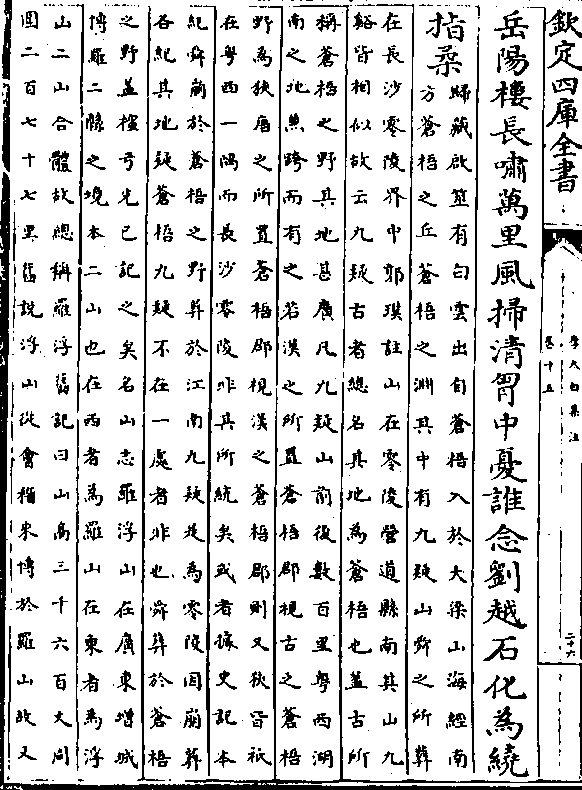 欽定四庫全書
李太白集注
卷十五
二十六
岳陽樓長嘯萬里風掃清胷中憂誰念劉越石化為繞
指柔
歸藏啟筮有白雲出自蒼梧入於大梁山海經南
方蒼梧之丘蒼梧之淵其中有九疑山舜之所葬
在長沙零陵界中郭璞註山在零陵營道縣南其山九
谿皆相似故云九疑古者總名其地為蒼梧也蓋古所
稱蒼梧之野其地甚廣凡九疑山前後數百里粤西湖
南之地兼跨而有之若漢之所置蒼梧郡視古之蒼梧
野為狹唐之所置蒼梧郡視漢之蒼梧郡則又狹皆祇
在粤西一隅而長沙零陵非其所統矣或者據史記本
紀舜崩於蒼梧之野葬於江南九疑是為零陵因崩葬
各紀其地疑蒼梧九疑不在一處者非也舜葬於蒼梧
之野蓋檀弓先已記之矣名山志羅浮山在廣東增城
博羅二縣之境本二山也在西者為羅山在東者為浮
山二山合體故總稱羅浮舊記曰山高三千六百丈周
圍二百七十七里舊説浮山從會稽來博於羅山故又